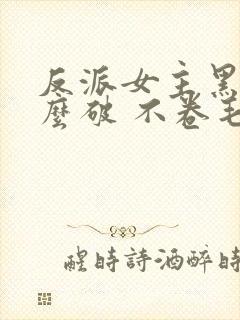 反派女主黑
麼破 不卷毛
醒時詩酒醉時